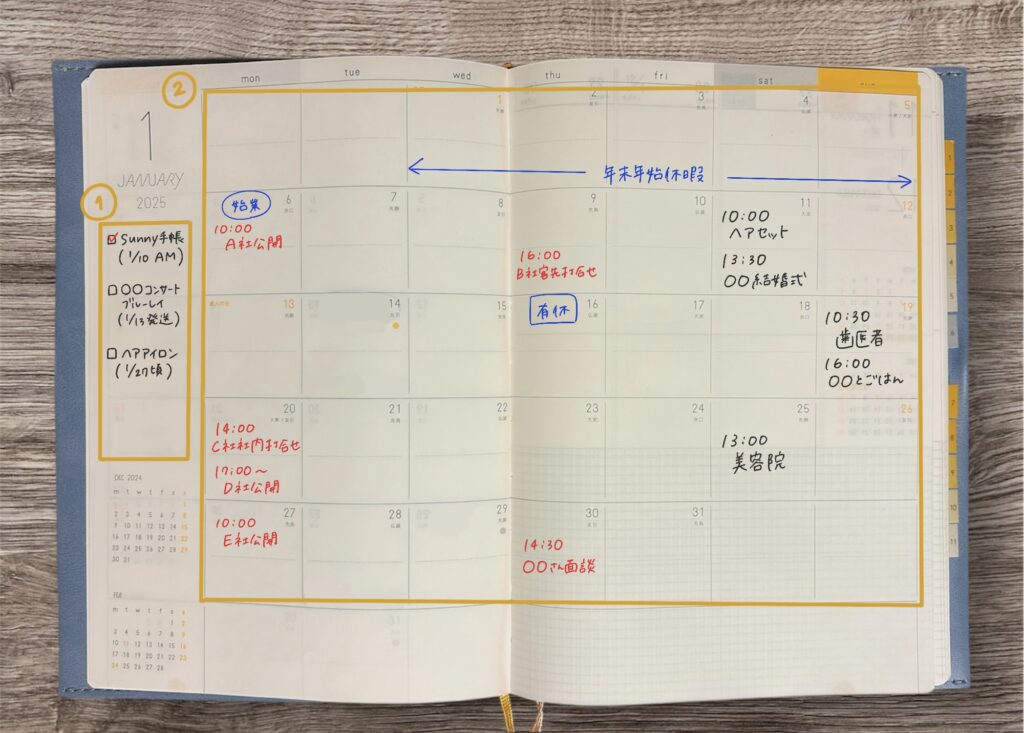 ②
mon tue wed thu fri sat
1
JANUARY
2025
①
☑ Sunny手帳
(1/10 AM)
□ 〇〇コンサート
ブルーレイ
(1/13発送)
□ ヘアアイロン
(1/27頃)
1 2 3 4 5
年末年始休暇
6 7 8 9 10 11 12
始業
10:00
A社公開
16:00
B社客先打合せ
10:00
ヘアセット
13:30
〇〇結婚式
13 14 15 16 17 18 19
成人の日
有休
10:30
歯医者
16:00
〇〇とごはん
20 21 22 23 24 25 26
14:00
C社社内打合せ
17:00〜
D社公開
13:00
美容院
27 28 29 30 31
10:00
E社公開
14:30
〇〇さん面談
DEC 2024
m t w t f s s
1
2 3 4 5 6 7 8
9 10 11 12 13 14 15
16 17 18 19 20 21 22
23 24 25 26 27 28 29
30 31
m t w t f s s
1 2
3 4 5 6 7 8 9
10 11 12 13 14 15 16
17 18 19 20 21 22 23
24 25 26 27 28